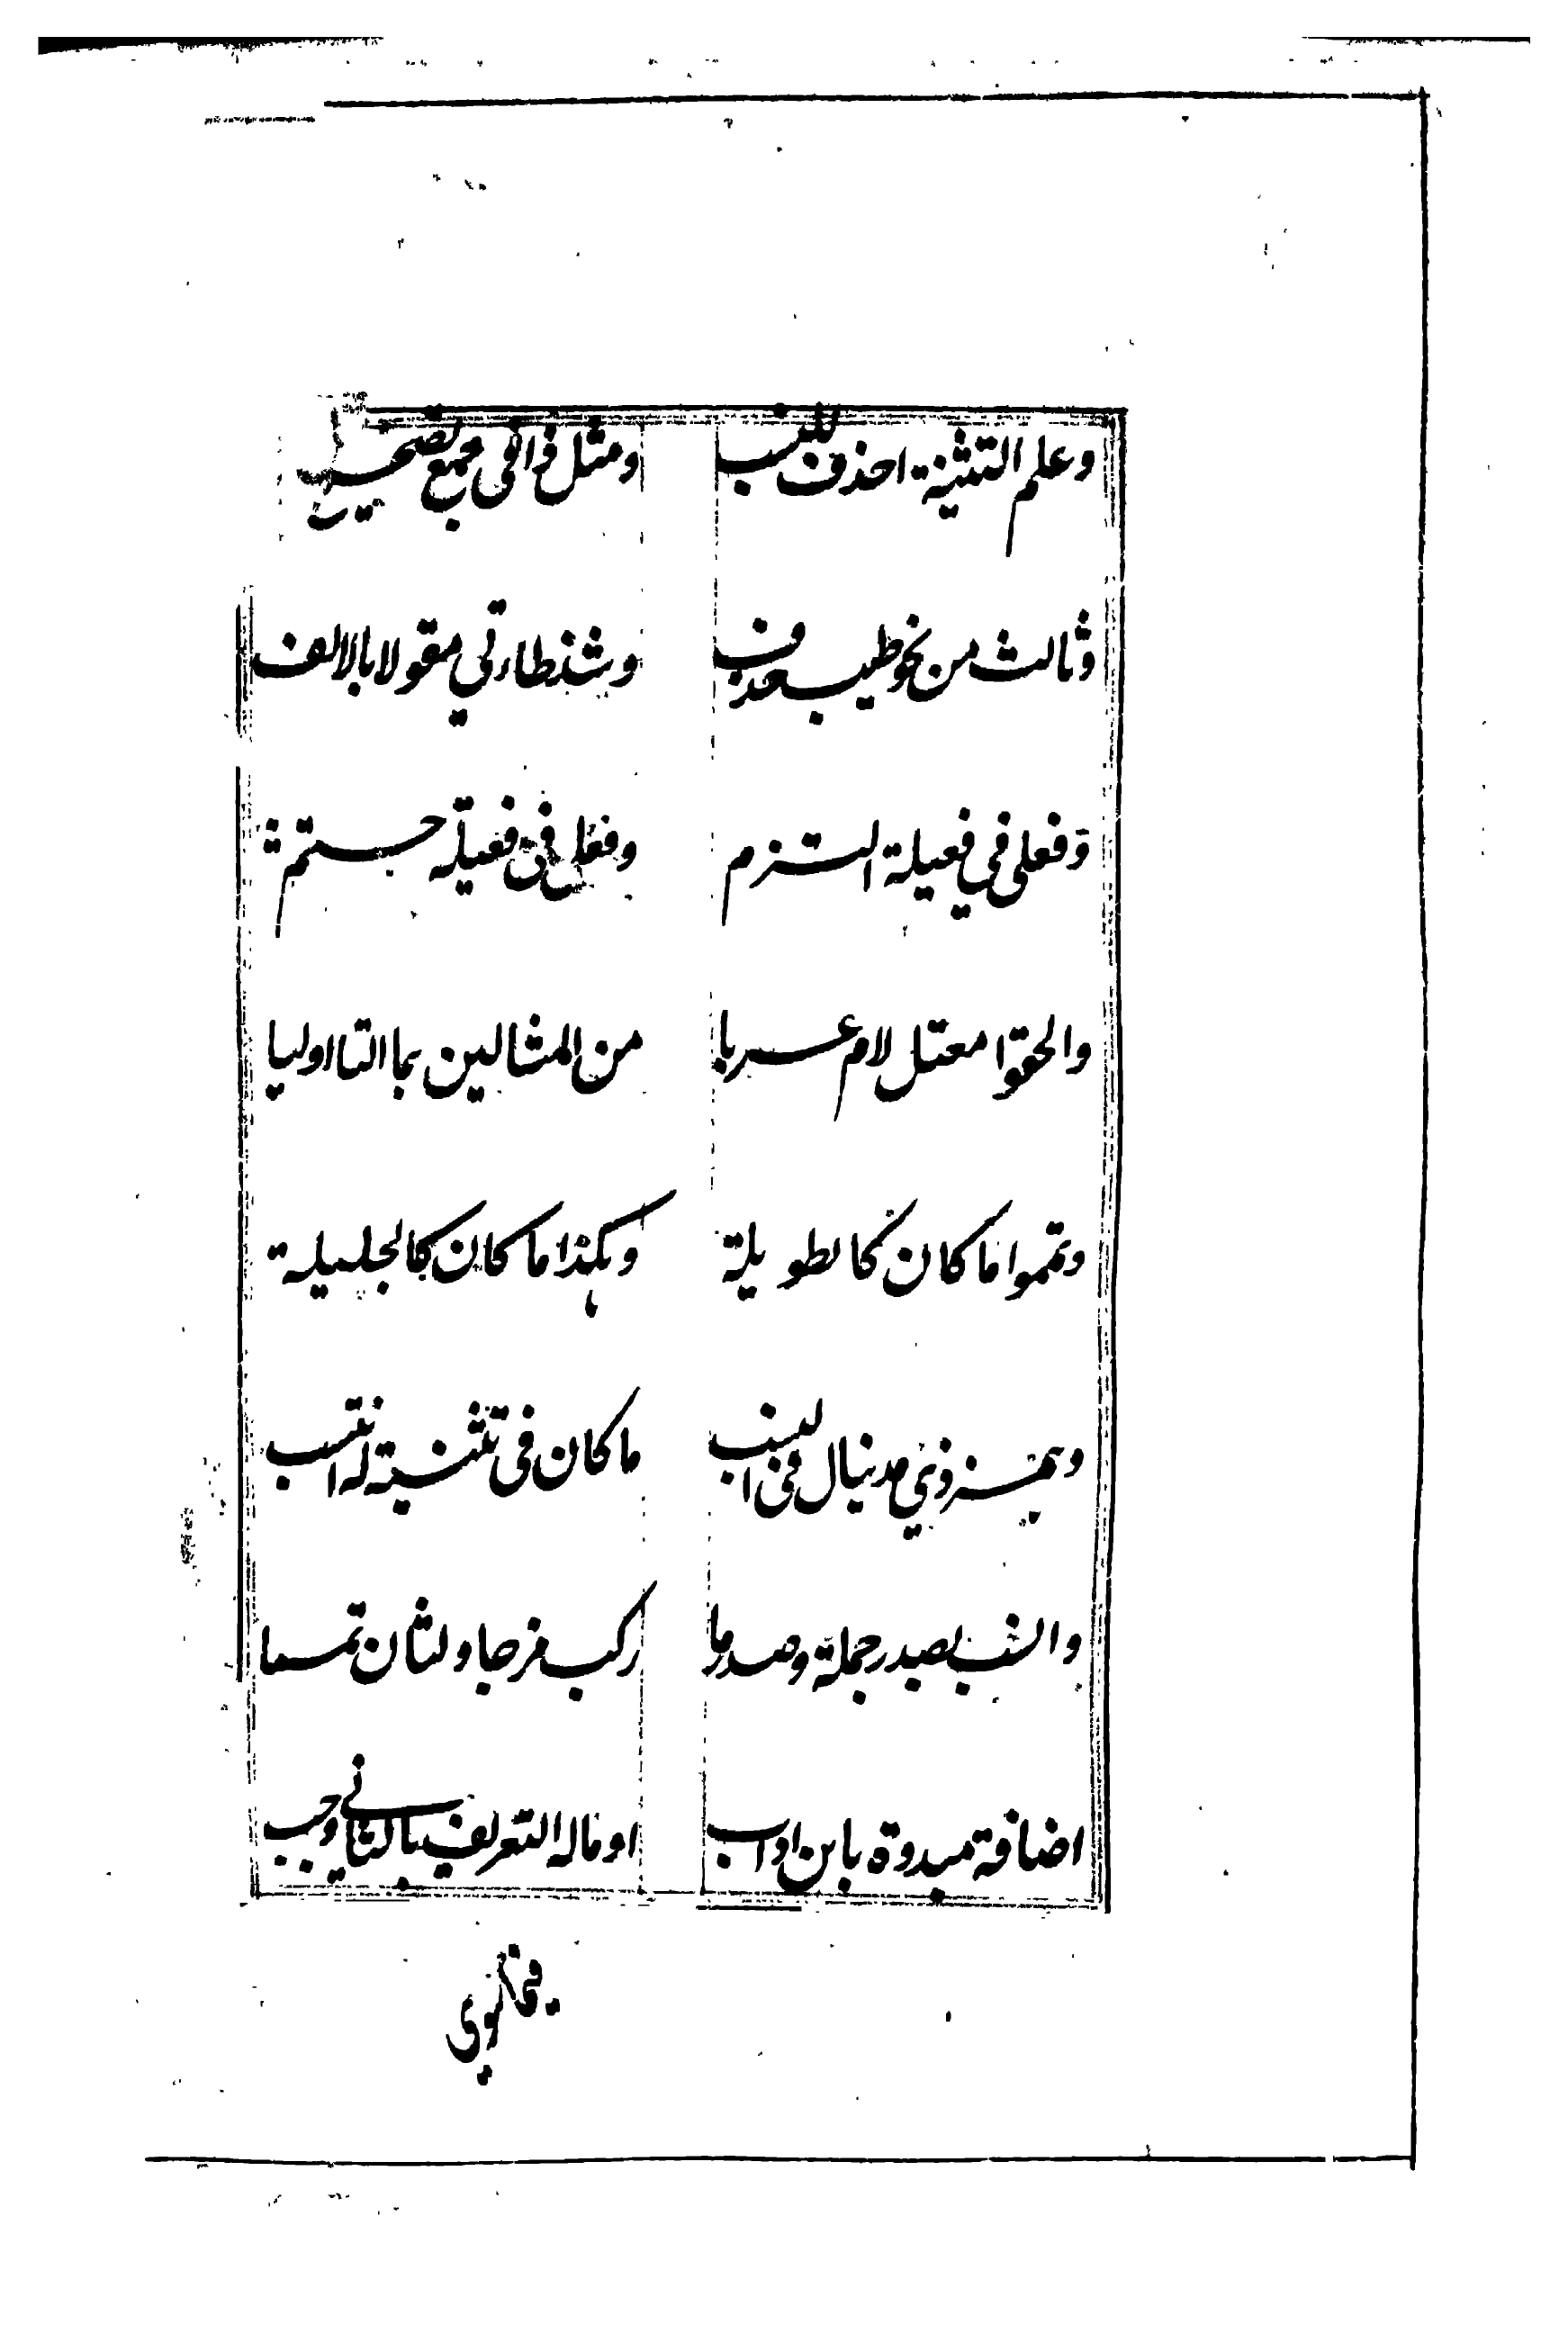 وعلم التثنية احذف للنسب ومثل ذا فى جمع تصحيح
وثالث من نحو طيب حذف وشذ طائي مقولا بالالف
وفعلى في فعيلة التزم وفعلى فى فعيلة حتم
والحقوا معتل لام عريا من المثالين بما التا اوليا
وتمموا ما كان كالطويلة وهكذا ما كان كالجليلة
وهمز ذي مد ينال فى النسب ما كان فى تثنية له انتسب
وانسب لصدر جملة وصدر ما ركب مزجا ولثان تمما
اضافة مبدوة بابن او اب او ماله التعريف بالثاني وجب